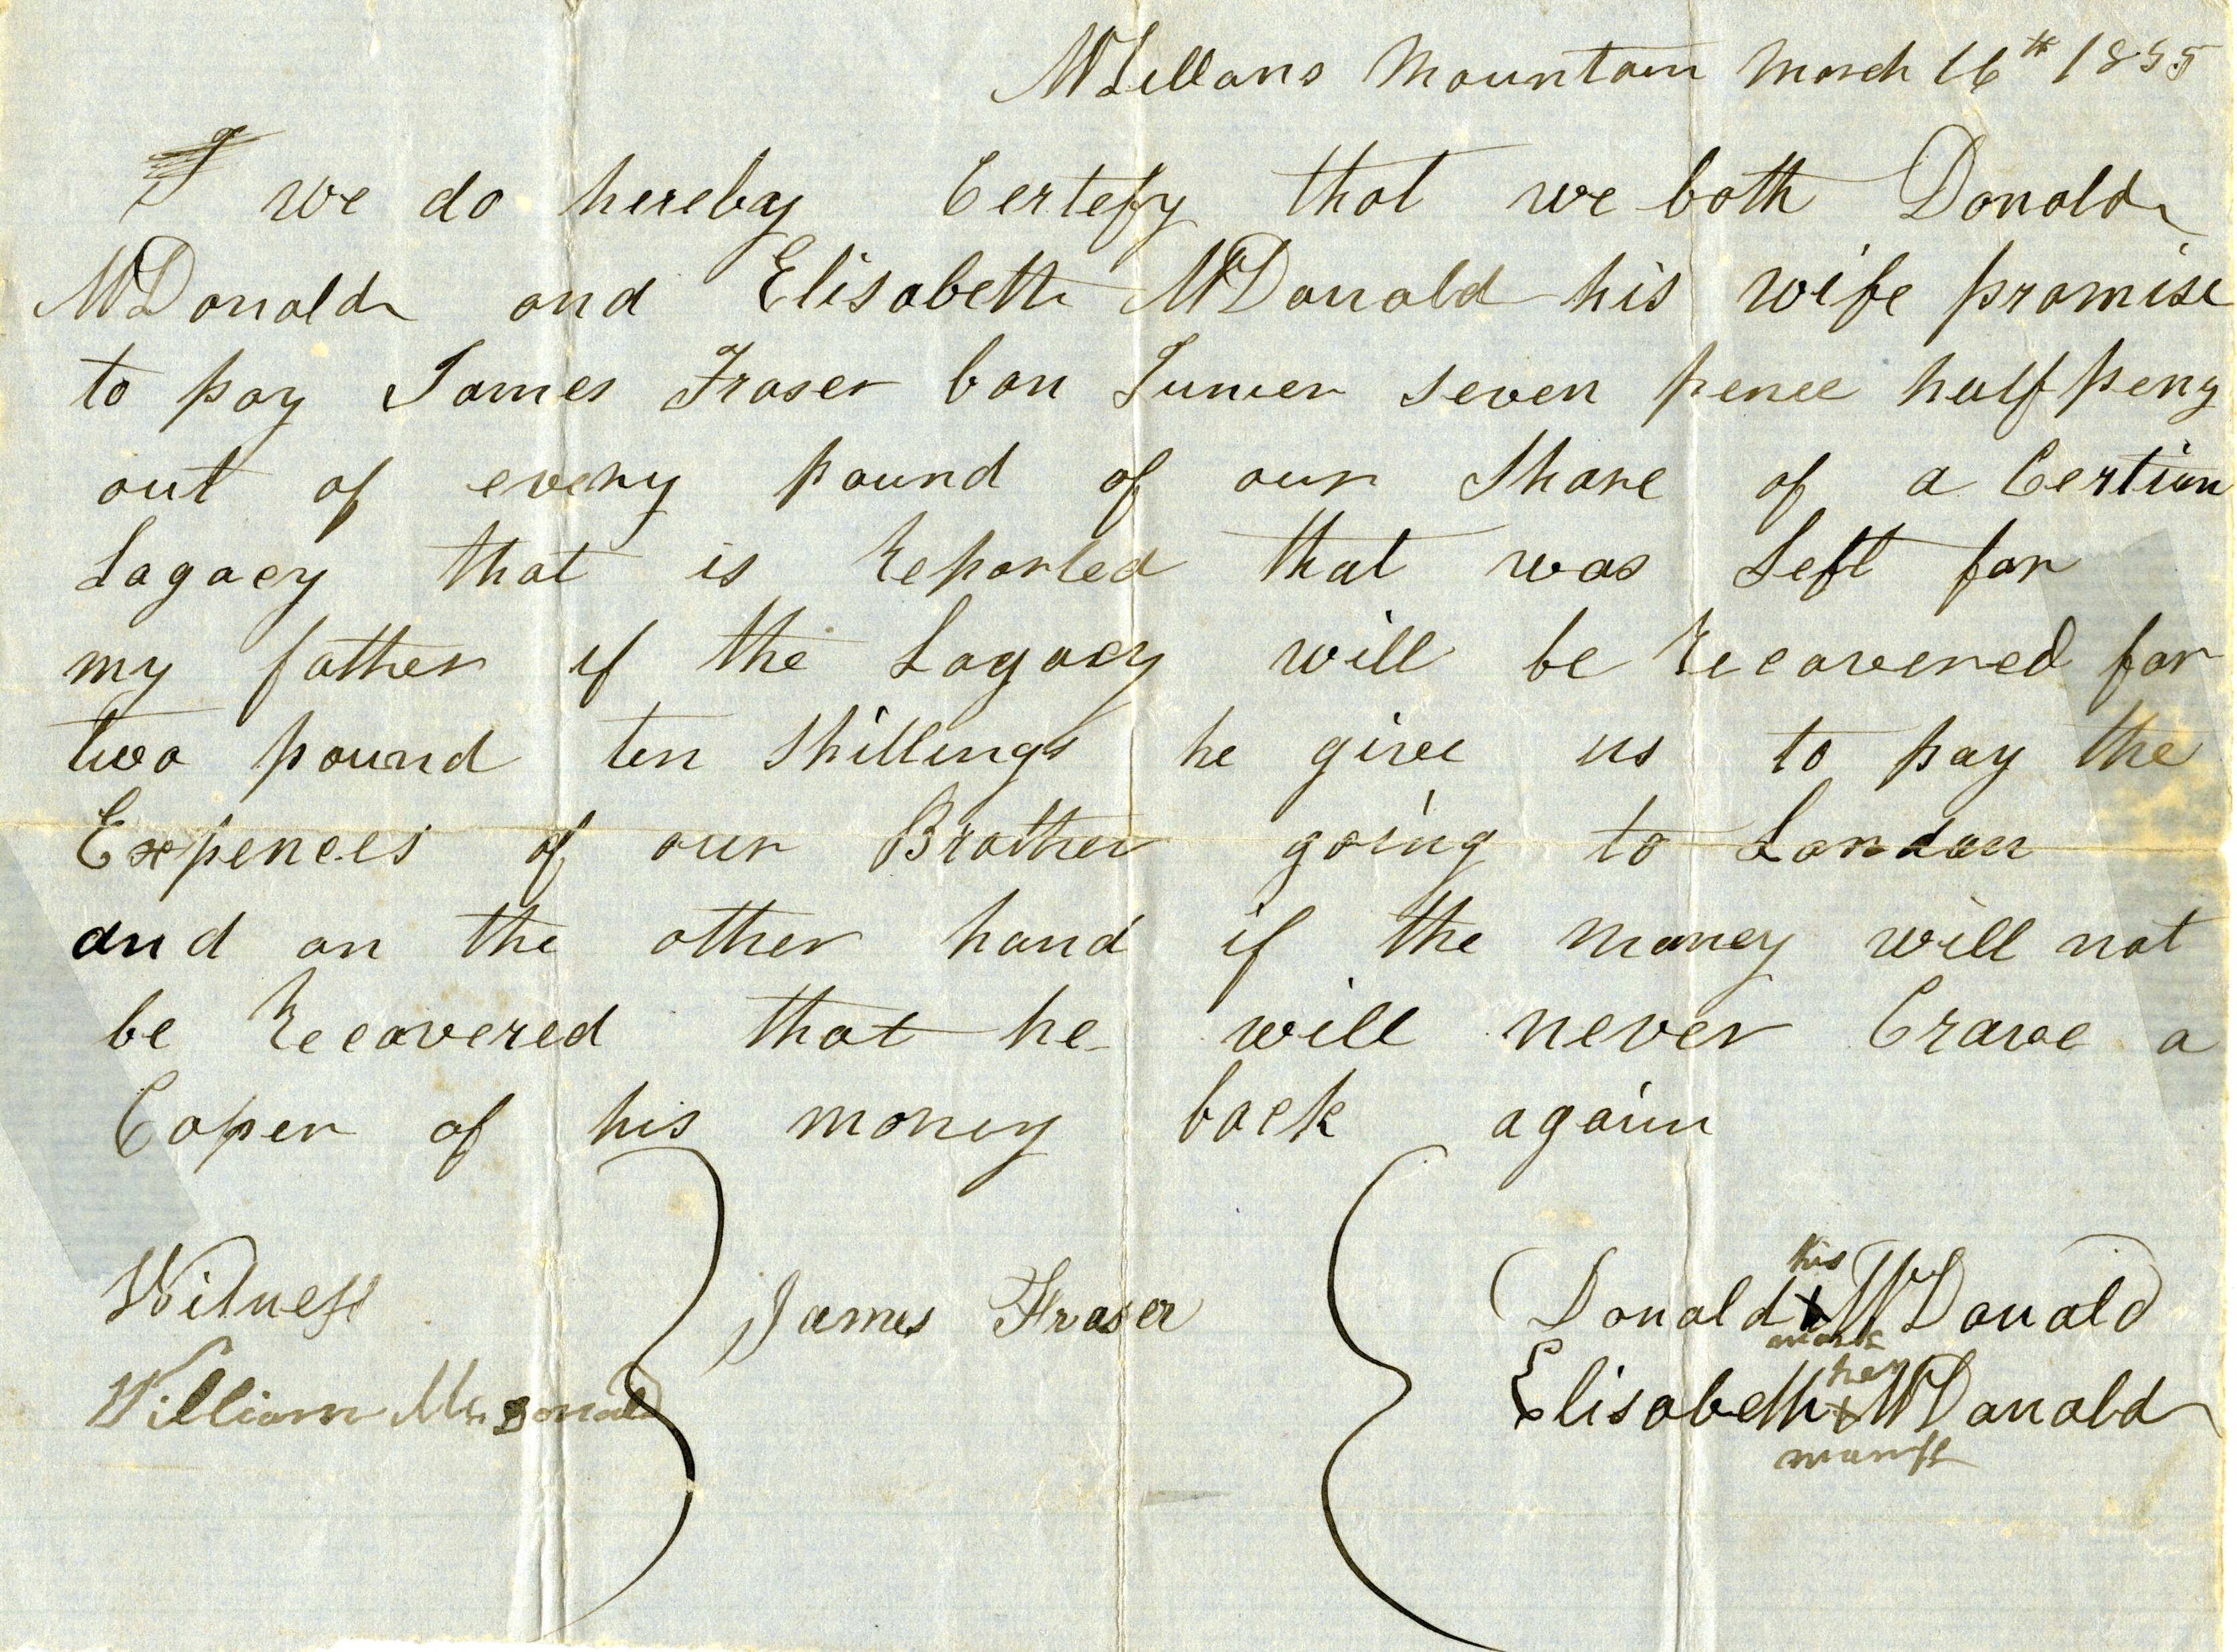 McLellans Mountain March 16th 1855
we do hereby Certefy that we both Donald
McDonald and Elisabeth McDonald his wife promise
to pay James Fraser ban Junier seven pence half peny
out of every pound of our Share of a Certian
Lagacy that is Reported that was Left for
my father if the Lagacy will be Recovered for
two pound ten Shillings he give us to pay the
Expences of our Brother going to London
and on the other hand if the money will not
be Recovered that he will never Crave a
Coper of his money back again
Witness
William McDonald
James Fraser
his
Donald x McDonald
mark
her
Elisabeth x McDonald
mark